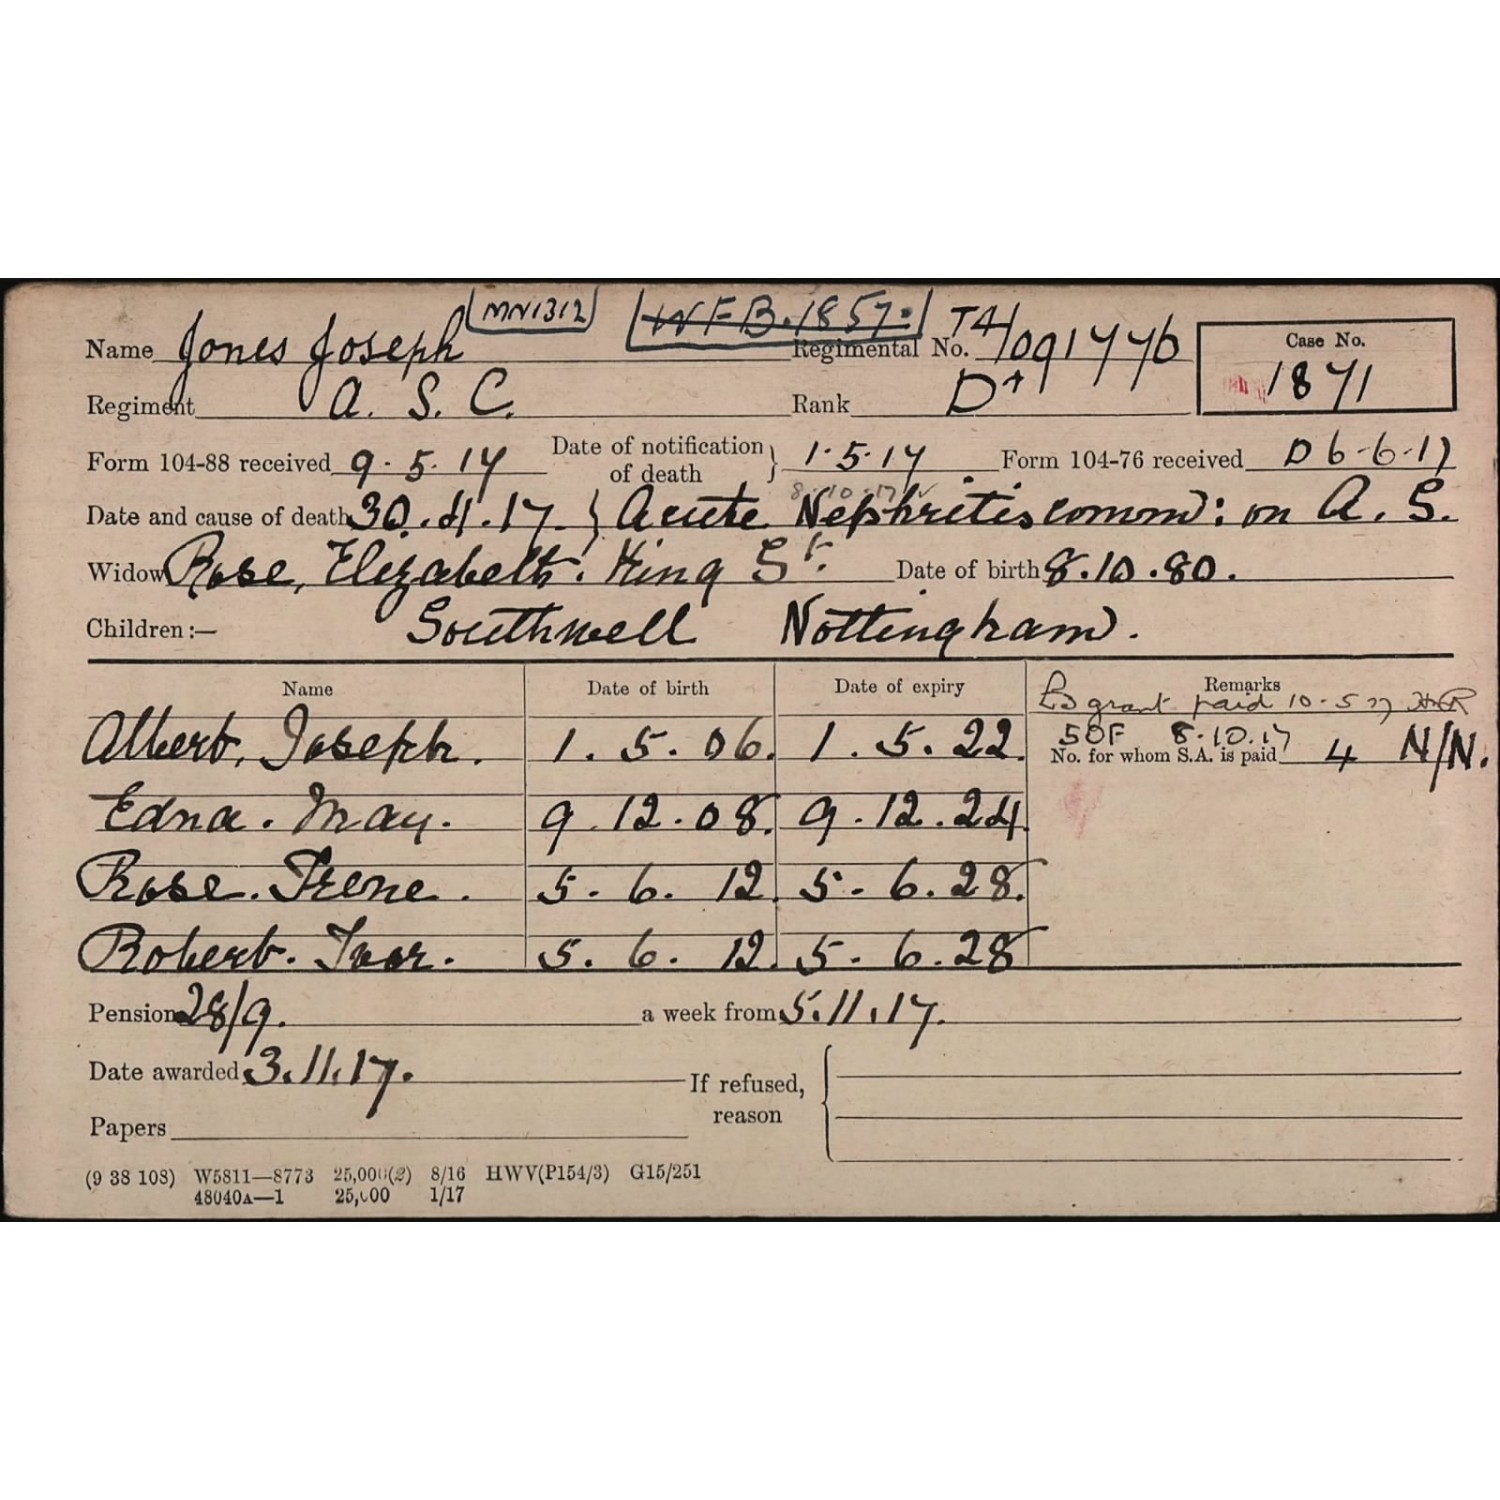 MN1312 WFB.1857.
Name Jones Joseph Regimental No. T4/091776
Case No. 1871
Regiment A. S. C. Rank Dr
Form 104-88 received 9.5.17 Date of notification of death } 1.5.17 Form 104-76 received D 6-6-17
8-10-17
Date and cause of death 30.4.17. } Acute Nephritis comm: on A. S.
Widow Rose, Elizabeth. King St. Date of birth 8.10.80.
Children :— Southwell Nottingham.
Name Date of birth Date of expiry Remarks
grant paid 10-5-17
Albert, Joseph. 1. 5. 06. 1. 5. 22.
SOF 8.10.17
No. for whom S.A. is paid 4 N/N.
Edna. May. 9.12.08. 9.12.24.
Rose. Irene. 5. 6. 12. 5. 6. 28.
Robert. Ivor. 5. 6. 12. 5. 6. 28
Pension 28/9. a week from 5.11.17.
Date awarded 3.11.17. If refused, reason
Papers
(9 38 108) W5811—8773 25,000(2) 8/16 HWV(P154/3) G15/251
48040A—1 25,000 1/17